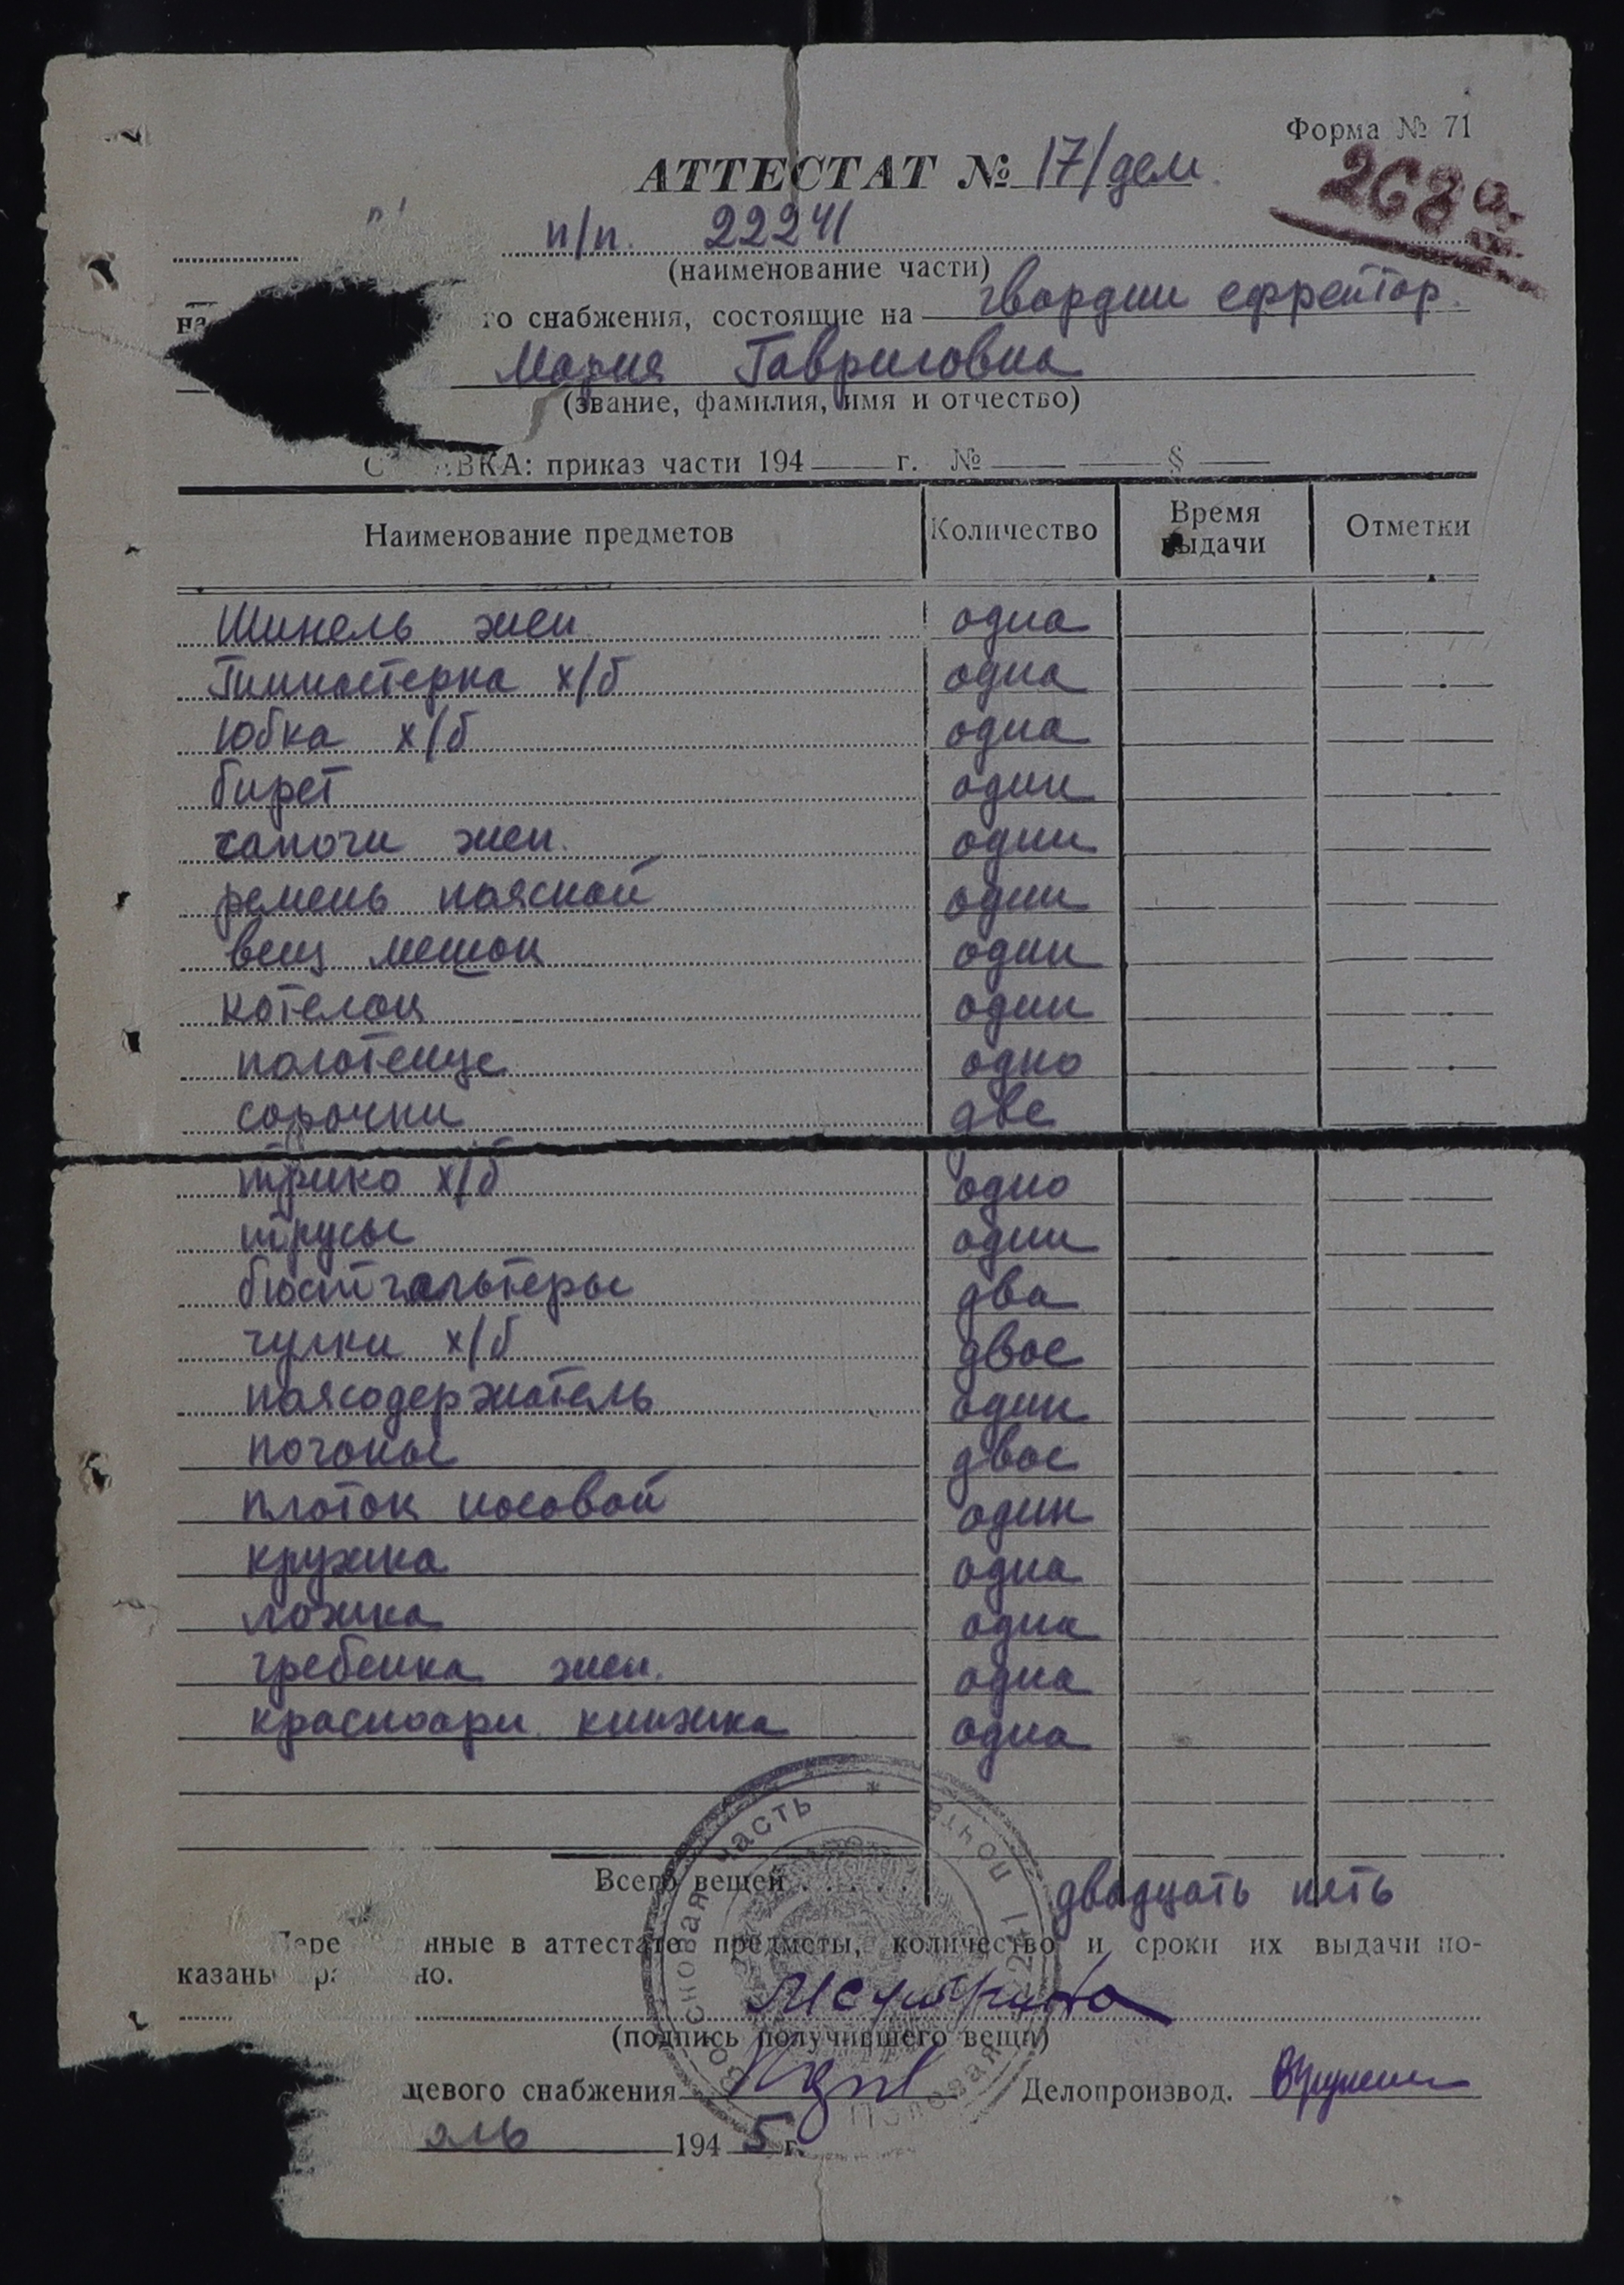 Форма № 71
АТТЕСТАТ № 17/дем.
268а
п/п. 22241
(наименование части)
на го снабжения, состоящие на гвардии ефрейтор.
Мария Гавриловна
(звание, фамилия, имя и отчество)
С АВКА: приказ части 194 г. № §
Наименование предметов Количество Время выдачи Отметки
Шинель жен одна
Гимнастерка х/б одна
Юбка х/б одна
бирет один
сапоги жен. одни
ремень поясной один
вещ мешок один
котелок один
полотенце одно
сорочки две
трико х/б одно
трусы одни
бюстгальтеры два
чулки х/б двое
поясодержатель один
погоны двое
платок носовой один
кружка одна
ложка одна
гребенка жен. одна
красноарм. книжка одна
Всего вещей двадцать пять
Пере нные в аттестате предметы, количество и сроки их выдачи по-
казаны пра но.
(подпись получившего вещи)
щевого снабжения Делопроизвод.
аль 1945 г.
часть * почта
Полевая